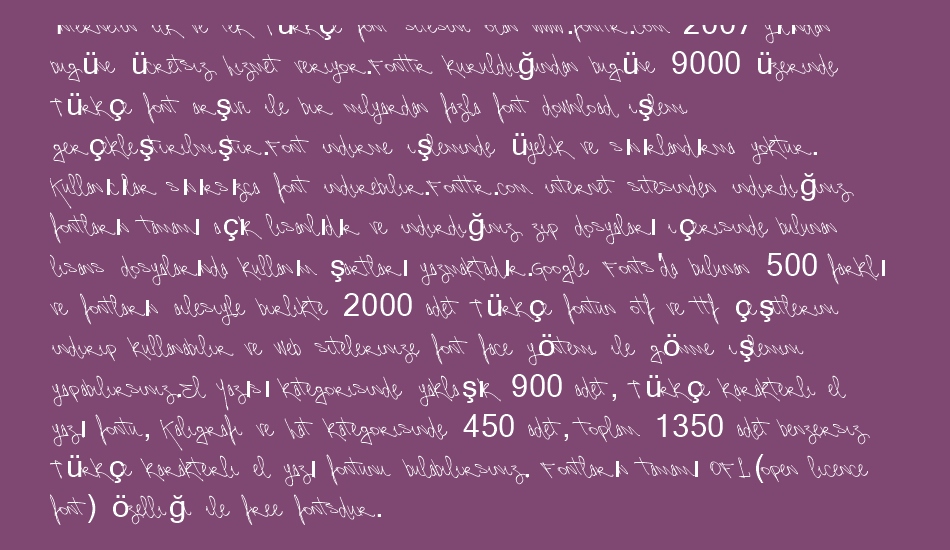 İnternetin ilk ve tek Türkçe font sitesini olan www.fonttr.com 2007 yılından
bugüne ücretsiz hizmet veriyor.Fonttr kurulduğundan bugüne 9000 üzerinde
Türkçe font arşivi ile bir milyardan fazla font download işlemi
gerçekleştirilmiştir.Font indirme işleminde üyelik ve sınırlandırma yoktur.
Kullanıcılar sınırsızca font indirebilir.Fonttr.com internet sitesinden indirdiğiniz
fontların tamamı açık lisanlıdır ve indirdiğiniz zip dosyaları içerisinde bulunan
lisans dosyalarında kullanım şartları yazmaktadır.Google Fonts'da bulunan 500 farklı
ve fontların ailesiyle birlikte 2000 adet Türkçe fontun otf ve ttf çeşitlerini
indirip kullanabilir ve web sitelerinize font face yötemi ile gömme işlemini
yapabilirsiniz.El Yazısı kategorisinde yaklaşık 900 adet, Türkçe karakterli el
yazı fontu, Kaligrafi ve hat kategorisinde 450 adet,toplam 1350 adet benzersiz
Türkçe karakterli el yazı fontunu bulabilirsiniz. Fontların tamamı OFL(open licence
font) özelliği ile free fontsdur.